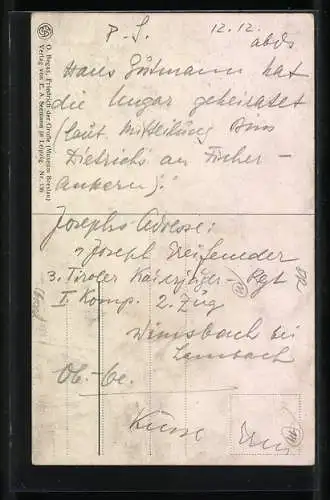 P.S. 12.12.
abds
Hans Gutmann hat
die Ungar geheiratet
(laut Mitteilung
Dietrichs an Fischer-
ankern)."
Josephs Adresse:
"Joseph
3. Tiroler Kaiserjäger-Rgt
I. Komp. 2. Zug
Wimsbach bei
Lambach
Ob.-Oe.
Küsse
O. Begas, Friedrich der Große (Museum Breslau)
Verlag von E. A. Seemann in Leipzig. Nr. 136